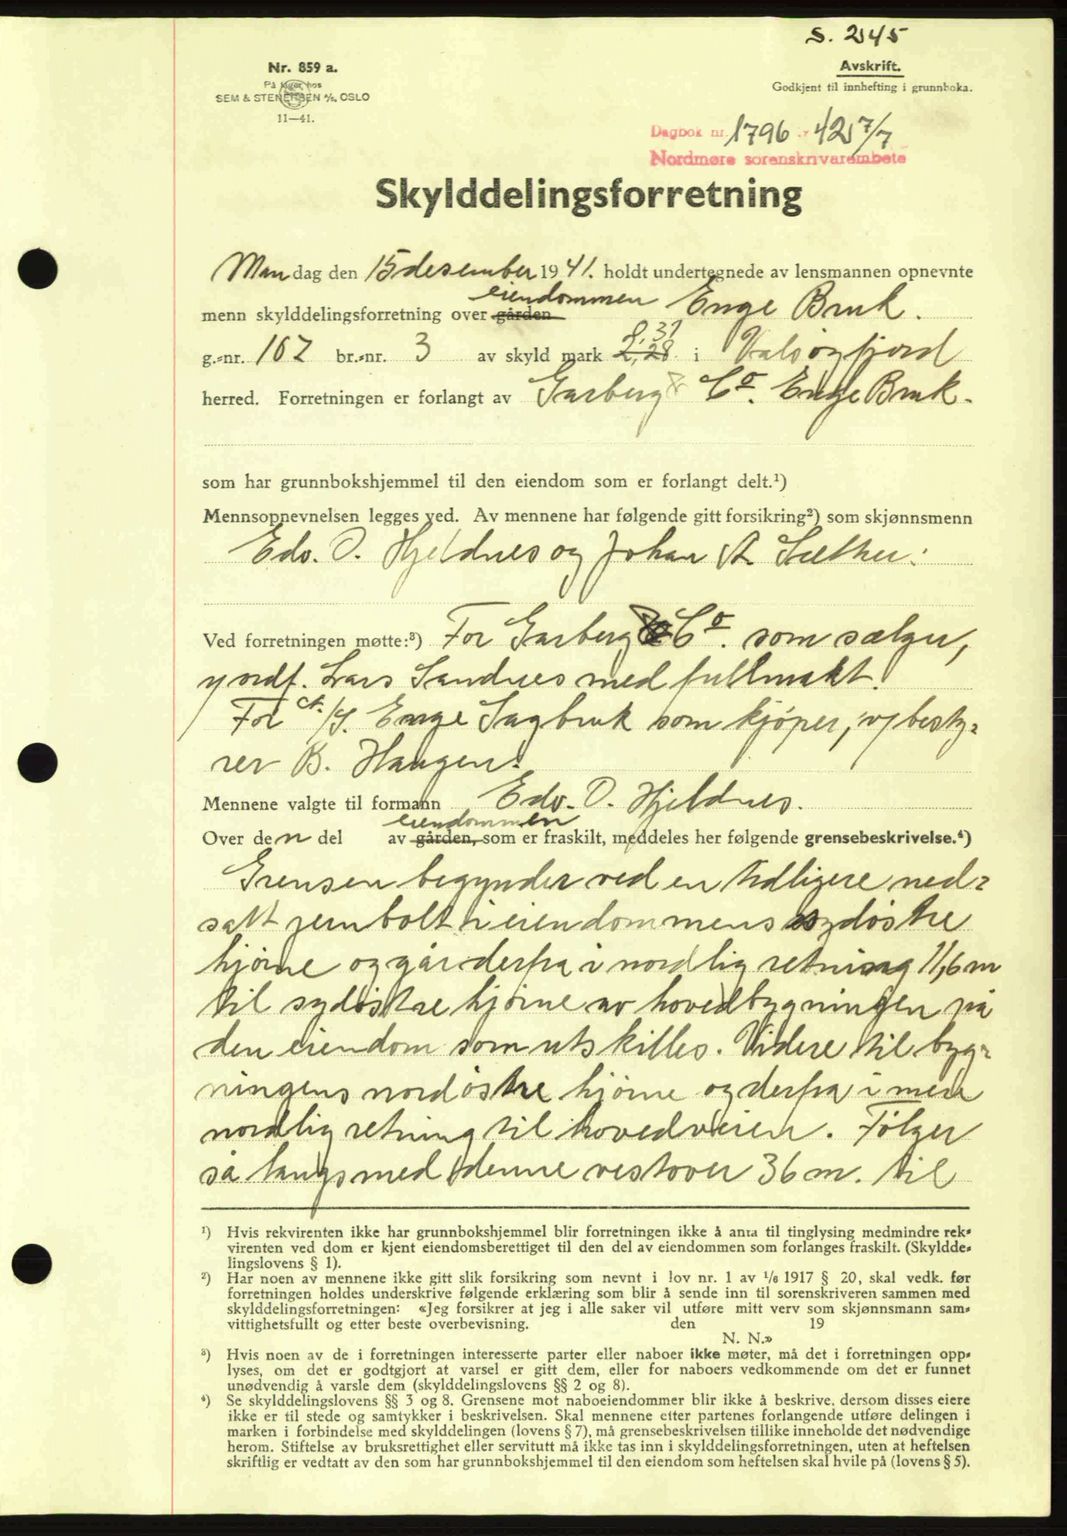 S. 245
Nr. 859 a.
På lager hos
SEM & STENERSEN A/S, OSLO
11—41.
Avskrift.
Godkjent til innhefting i grunnboka.
Dagbok nr. 1796 42 7/7
Nordmøre sorenskrivarembete
Skylddelingsforretning
Mandag den 15 desember 1941. holdt undertegnede av lensmannen opnevnte
eiendommen
menn skylddelingsforretning over gården Enge Bruk.
g.-nr. 107 br.-nr. 3 av skyld mark 2,28 i Valsøyfjord
herred. Forretningen er forlangt av Garberg & Co. Enge Bruk.
som har grunnbokshjemmel til den eiendom som er forlangt delt.¹)
Mennsopnevnelsen legges ved. Av mennene har følgende gitt forsikring²) som skjønnsmenn
Edv. O. Hjeldnes og Johan A. Sæther.
Ved forretningen møtte:³) For Garberg & Co. som sælger,
ordf. Lars Sandnes med fullmakt.
For A/S. Enge Sagbruk som kjøper, v/ besty-
rer B. Haugen.
Mennene valgte til formann Edv. O. Hjeldnes.
eiendommen
Over den del av gården, som er fraskilt, meddeles her følgende grensebeskrivelse.⁴)
Grensen begynder ved en tidligere ned-
satt jernbolt i eiendommens sydøstre
hjørne og går derfra i nordlig retning 11,6 m
til sydøstre hjørne av hovedbygningen på
den eiendom som utskilles. Videre til byg-
ningens nordøstre hjørne og derfra i mere
nordlig retning til hovedveien. Følger
så langs med denne vestover 36 m. til
¹) Hvis rekvirenten ikke har grunnbokshjemmel blir forretningen ikke å anta til tinglysing medmindre rek-
virenten ved dom er kjent eiendomsberettiget til den del av eiendommen som forlanges fraskilt. (Skyldde-
lingslovens § 1).
²) Har noen av mennene ikke gitt slik forsikring som nevnt i lov nr. 1 av 1/6 1917 § 20, skal vedk. før
forretningen holdes underskrive følgende erklæring som blir å sende inn til sorenskriveren sammen med
skylddelingsforretningen: «Jeg forsikrer at jeg i alle saker vil utføre mitt verv som skjønnsmann sam-
vittighetsfullt og etter beste overbevisning. den 19
N. N.»
³) Hvis noen av de i forretningen interesserte parter eller naboer ikke møter, må det i forretningen opp-
lyses, om det er godtgjort at varsel er gitt dem, eller for naboers vedkommende om det er funnet
unødvendig å varsle dem (skylddelingslovens §§ 2 og 8).
⁴) Se skylddelingslovens §§ 3 og 8. Grensene mot naboeiendommer blir ikke å beskrive, dersom disses eiere
ikke er til stede og samtykker i beskrivelsen. Skal mennene etter partenes forlangende utføre delingen i
marken i forbindelse med skylddelingen (lovens § 7), må grensebeskrivelsen tillike inneholde det nødvendige
herom. Stiftelse av bruksrettighet eller servitutt må ikke tas inn i skylddelingsforretningen, uten at heftelsen
skriftlig er vedtatt av den som har grunnbokshjemmel til den eiendom som heftelsen skal hvile på (lovens § 5).